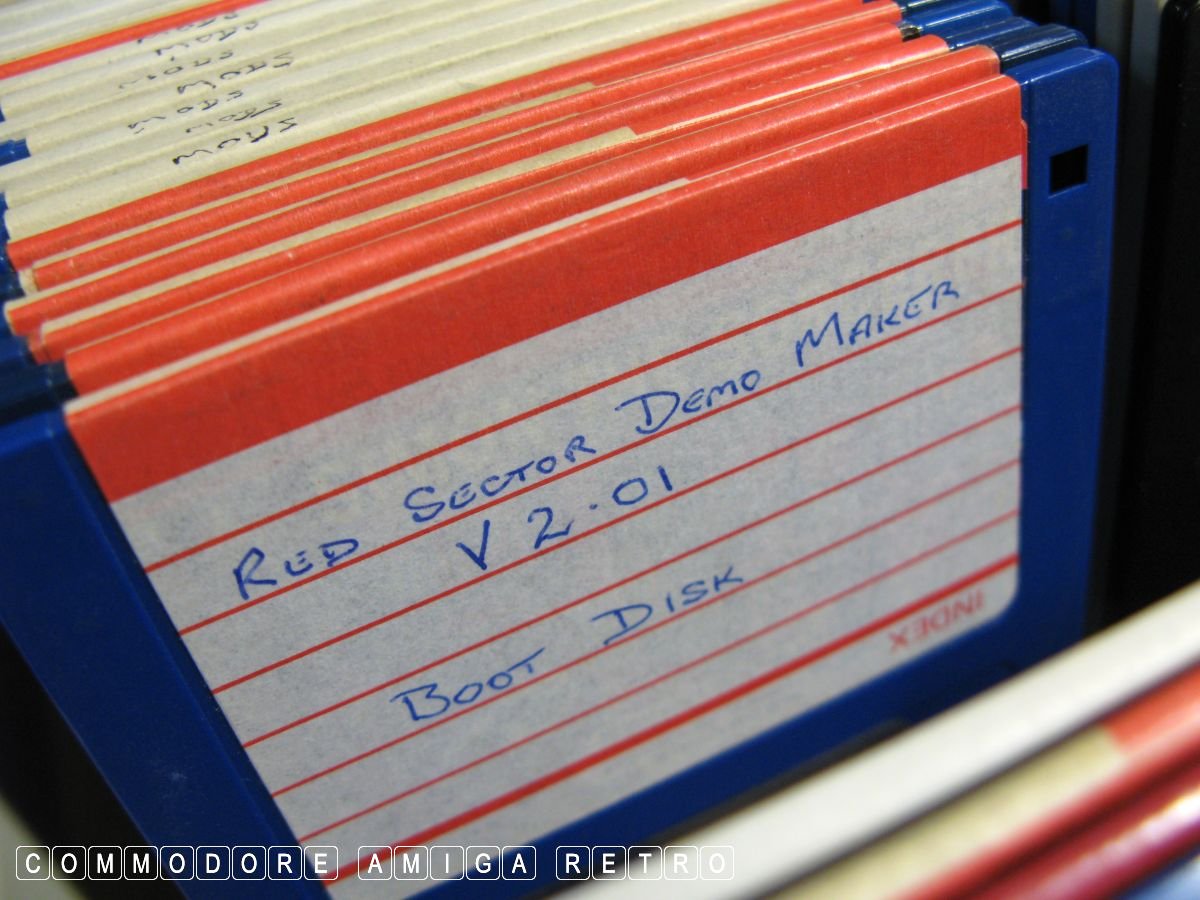 RED SECTOR DEMO MAKER
V 2.01
BOOT DISK
INDEX
COMMODORE AMIGA RETRO